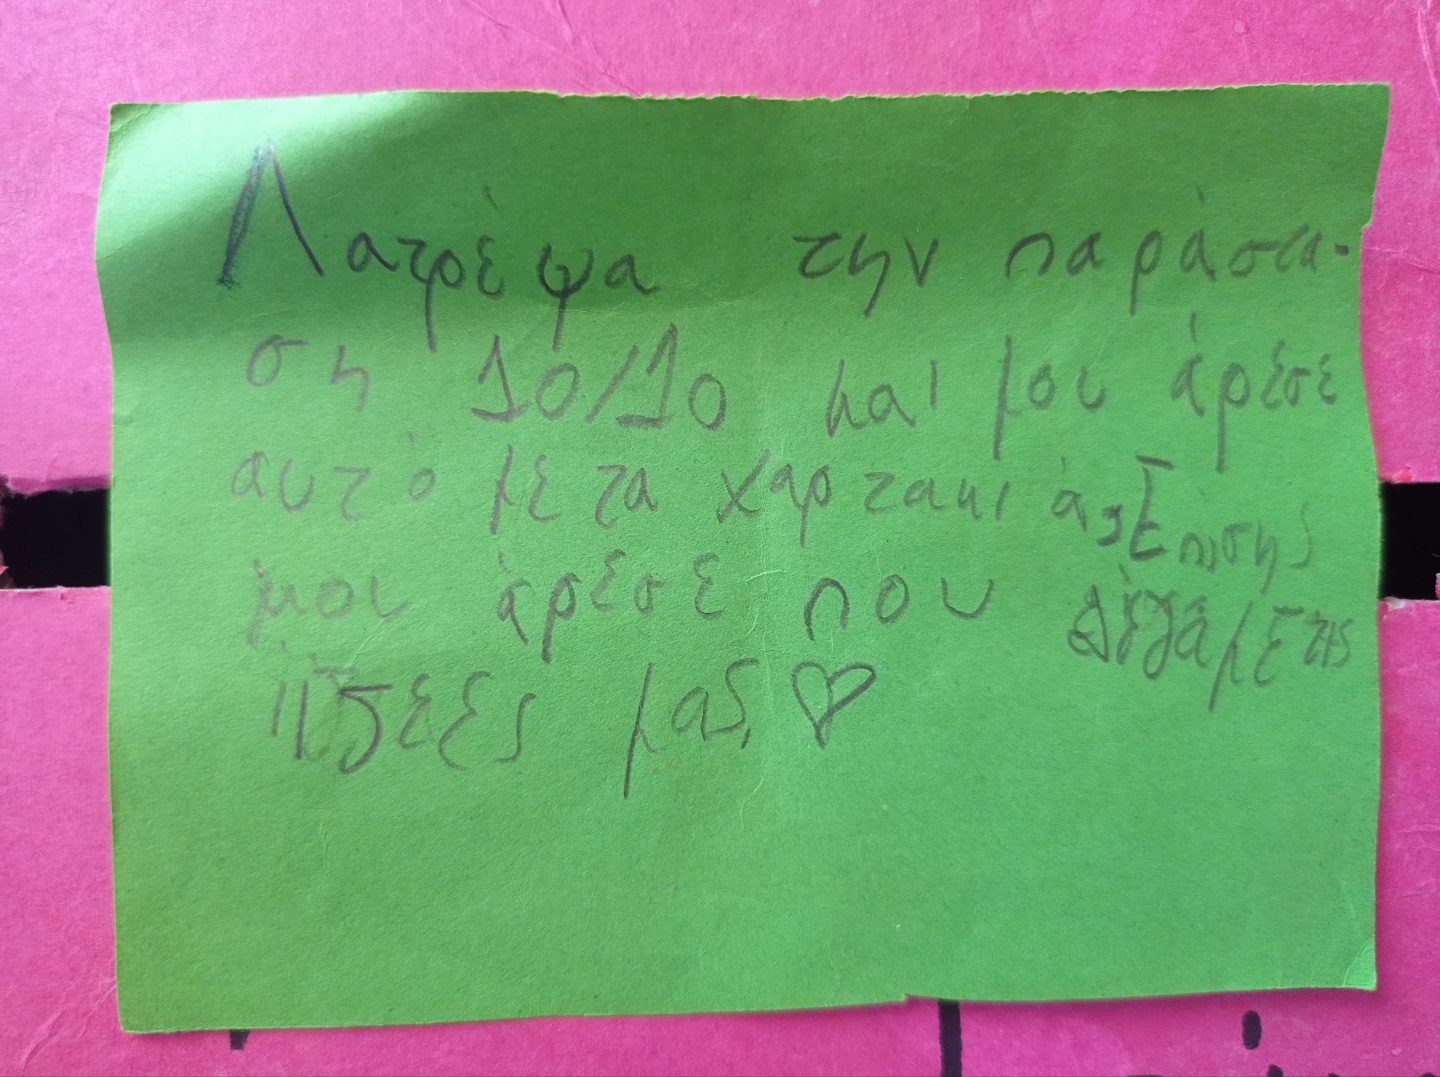 Λατρέψα την παράστα-
ση 10/10 και μου άρέσε
αυτό με τα χαρτακι ά, Επισης
μου άρέσε που λέγαμε τις
λέξεις μας ♡